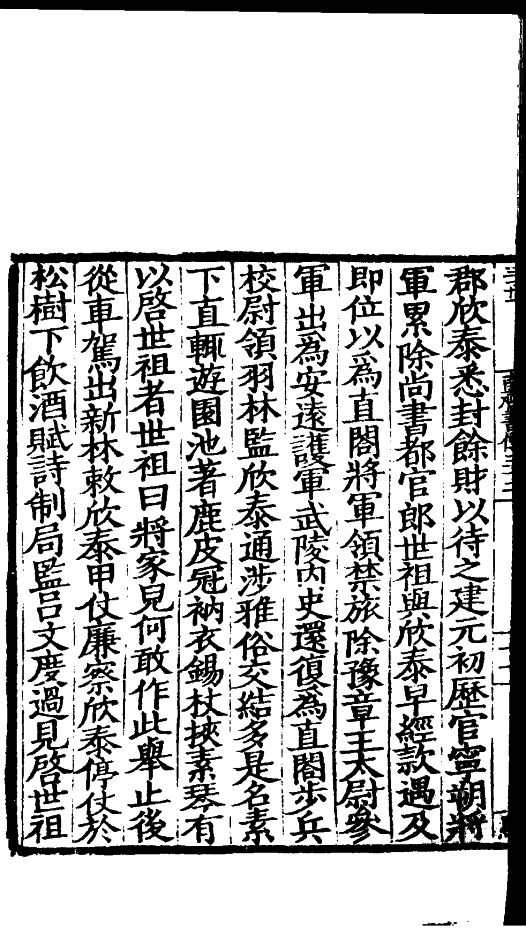 郡欣泰悉封餘財以待之建元初歷官寧朔將
軍累除尚書都官郎世祖與欣泰早經款遇及
即位以爲直閤將軍領禁旅除豫章王太尉參
軍出爲安遠護軍武陵內史還復爲直閤步兵
校尉領羽林監欣泰通涉雅俗交結多是名素
下直輒遊園池著鹿皮冠衲衣錫杖挾素琴有
以啓世祖者世祖曰將家兒何敢作此舉止後
從車駕出新林敕欣泰甲仗廉察欣泰停仗於
松樹下飲酒賦詩制局監呂文度過見啓世祖